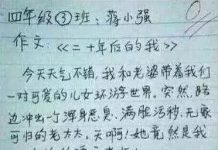 四年级③班：蒋小强
作文：《二十年后的我》
今天天气不错，我和老婆带着我们
一对可爱的儿女环游世界。突然，路
边冲出一个浑身恶臭、满脸污秽、无家
可归的老太太，天啊！她竟然是我